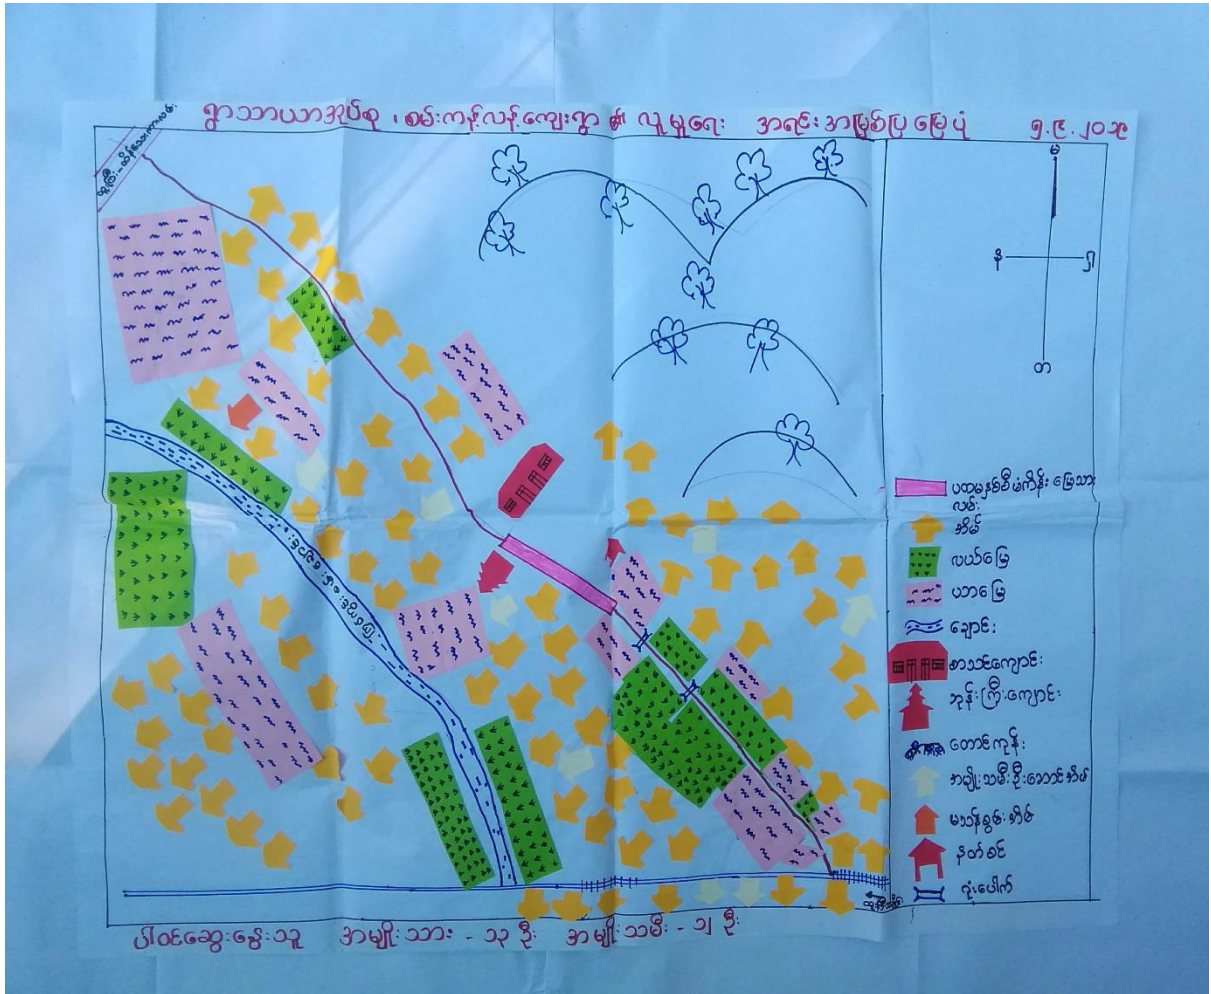 ရွာသာယာအုပ်စု၊ စမ်းကန့်လန့်ကျေးရွာ ၏ လူမှုရေး အရင်းအမြစ်ပြ မြေပုံ ၅.၉.၂၀၁၉
မ
န ၅
တ
ပထမနှစ်စီမံကိန်း မြေသားလမ်း
အိမ်
လယ်မြေ
ယာမြေ
ချောင်း
စာသင်ကျောင်း
ဘုန်းကြီးကျောင်း
တောင်ကုန်း
အမျိုးသမီးဦးဆောင်အိမ်
မသန်စွမ်းအိမ်
နတ်စင်
ဂုံးပေါက်
ပါဝင်ဆွေးနွေးသူ အမျိုးသား - ၁၃ ဦး အမျိုးသမီး - ၁၂ ဦး